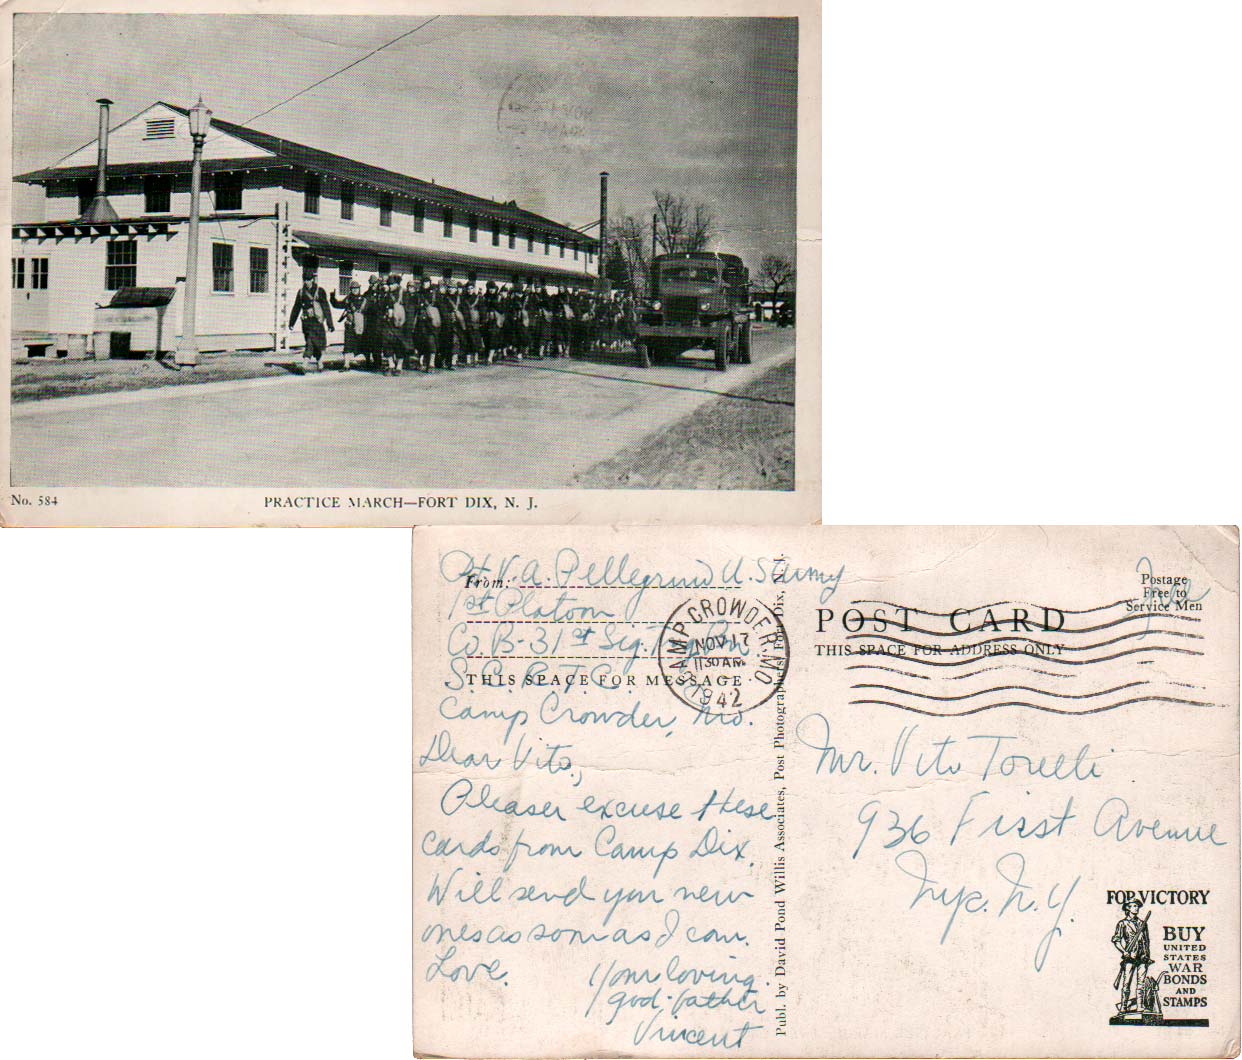 No. 584
PRACTICE MARCH—FORT DIX, N. J.
From:
Pvt. V. A. Pellegrino U. S. Army
1st Platoon
Co. B-31st Sig. Trg. Bn.
S. C. R. T. C.
THIS SPACE FOR MESSAGE
Camp Crowder, Mo.
Dear Vito,
Please excuse these
cards from Camp Dix.
Will send you new
ones as soon as I can.
Love.
Your loving
god-father
Vincent
CAMP CROWDER, MO.
NOV 17
11 30 AM
1942
Publ. by David Pond Willis Associates, Post Photographers, Fort Dix, N. J.
Free
Postage
Free to
Service Men
POST CARD
THIS SPACE FOR ADDRESS ONLY
Mr. Vito Torelli
936 First Avenue
Nyc. N. Y.
FOR VICTORY
BUY
UNITED
STATES
WAR
BONDS
AND
STAMPS